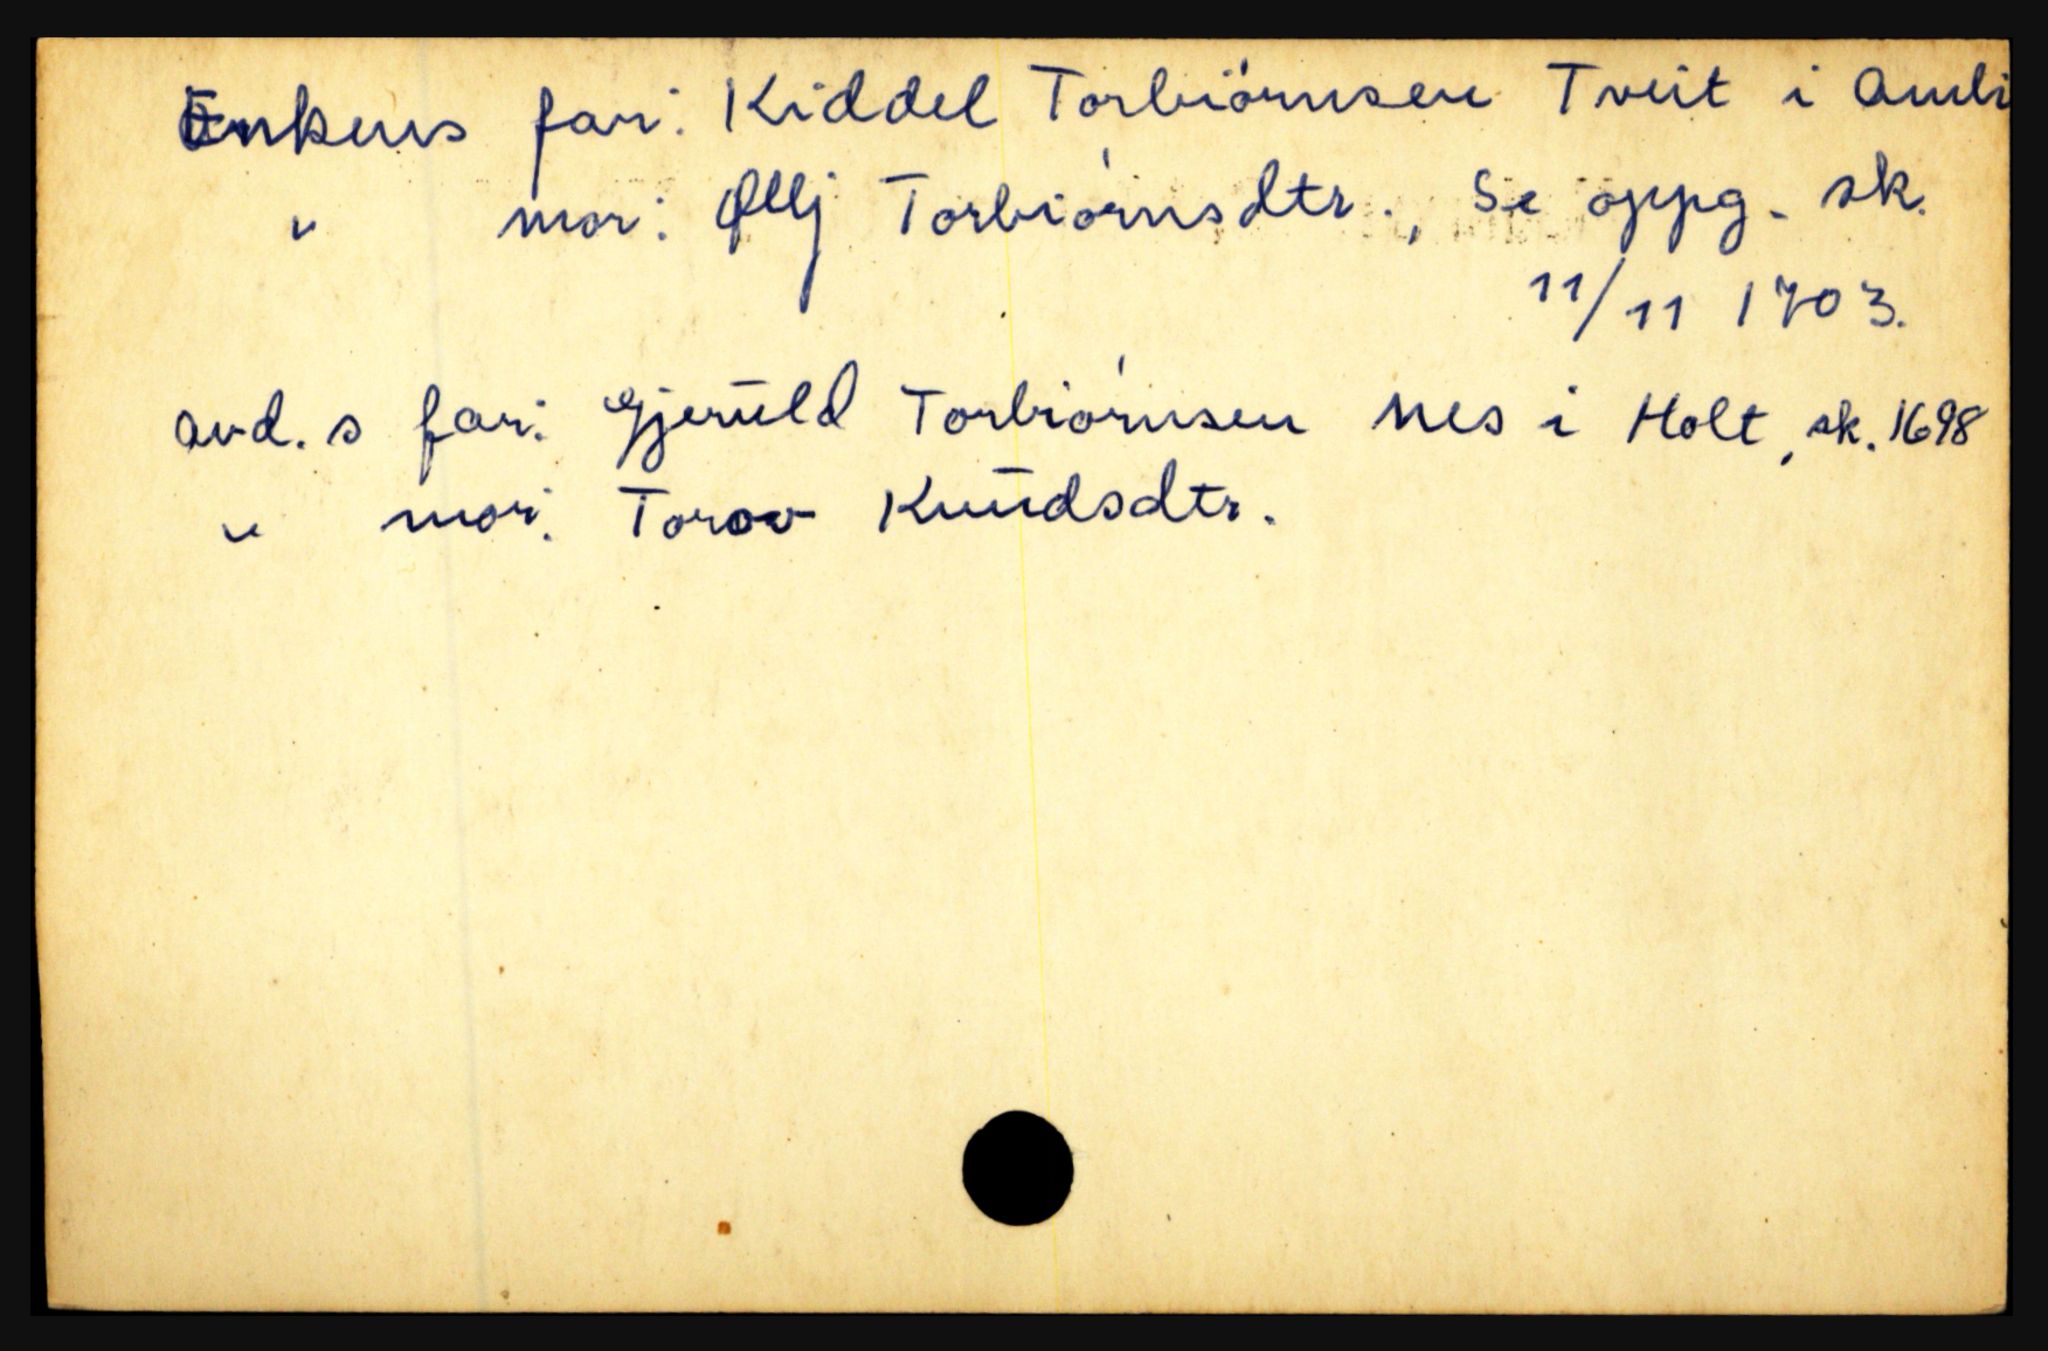 Enkens far: Kiddel Torbiörnsen Tveit i Amli
" mor: Øllj Torbiórnsdtr., Se oppg. sk.
11/11 1703.
avd. s far: Gjeruld Torbiórnsen Nes i Holt, sk. 1698
" mor: Torov Knudsdtr.